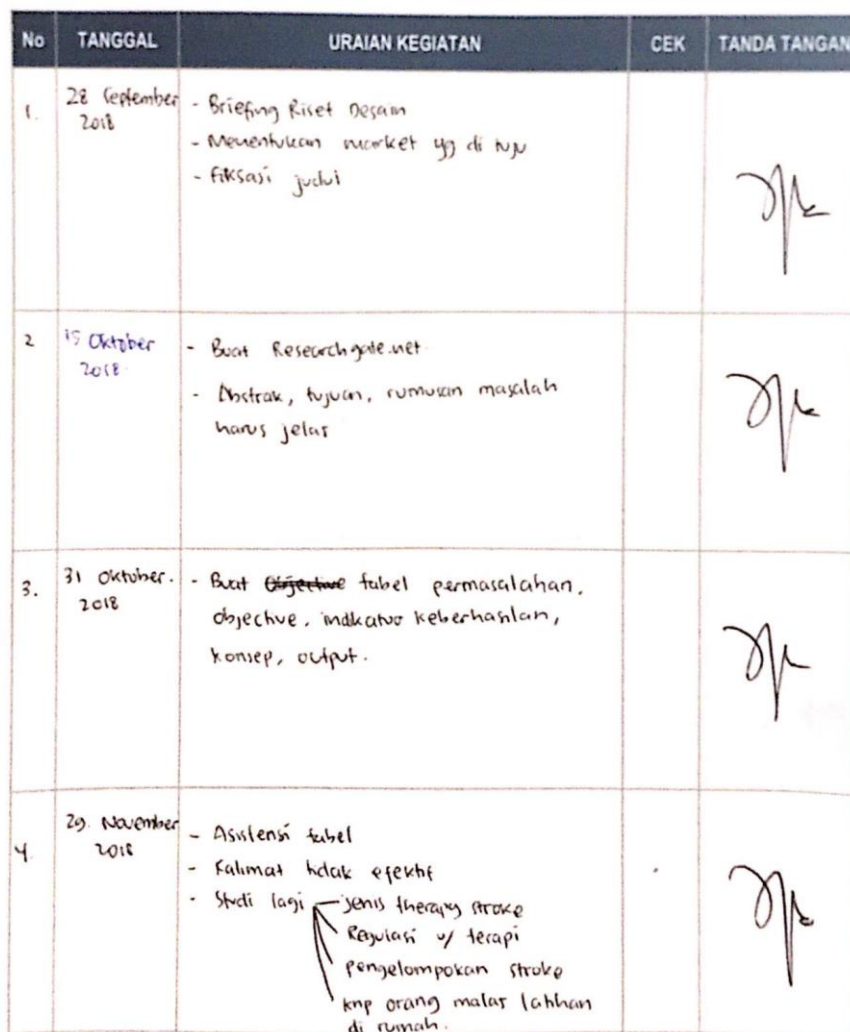 No TANGGAL URAIAN KEGIATAN CEK TANDA TANGAN
1. 28 September 2018 - Briefing Riset Desain
- Menentukan market yg di tuju
- Fiksasi judul
2 15 Oktober 2018. - Buat Researchgate.net.
- Abstrak, tujuan, rumusan masalah
harus jelas
3. 31 Oktober. 2018 - Buat Objective tabel permasalahan,
objective, indikator keberhasilan,
konsep, output.
4. 29. November 2018 - Asistensi tabel
- Kalimat tidak efektif
- Studi lagi jenis therapy stroke
Regulasi u/ terapi
pengelompokan stroke
knp orang malas latihan
di rumah.